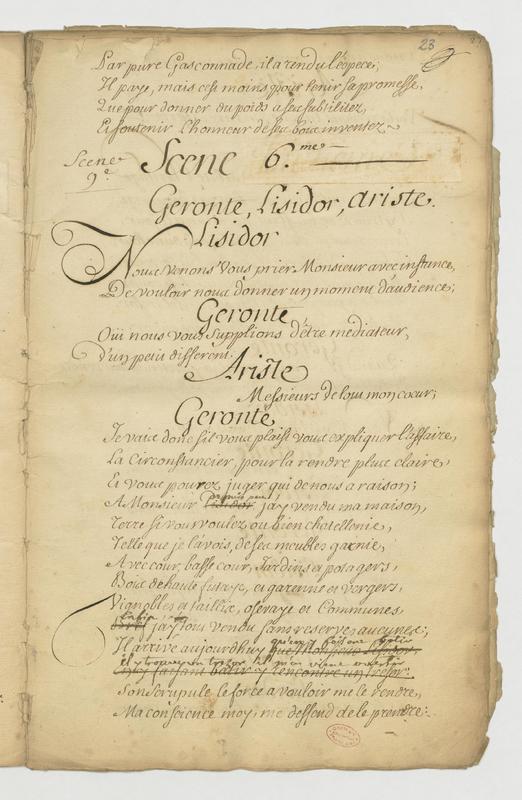 23
Par pure Gasconnade, il a rendu l'espece;
Il paye, mais c'est moins pour tenir sa promesse,
Que pour donner du poids a ses subtilitez,
Et soutenir l'honneur de ses bois inventez.
Scene 9.e
Scene 6.me
Geronte, Lisidor, Ariste.
Lisidor
Nous venons vous prier Monsieur avec instance,
De vouloir nous donner un moment d'audience;
Geronte
Oüi nous vous supplions d'être mediateur,
D'un petit different.
Ariste
Messieurs de tout mon coeur;
Geronte
Je vais donc s'il vous plaist vous expliquer l'affaire,
La circonstancier, pour la rendre plus claire,
Et vous pourez juger qui de nous a raison;
A Monsieur Lisidor j'ay vendu ma maison,
Terre si vous voulez ou bien chatellenie,
Telle que je l'avois, de ses meubles garnie,
Avec cour, basse cour, Jardins et potagers,
Bois de haute futaye, et garenne et vergers,
Vignobles et taillis, oseraye et Communes,
Enfin j'ay tout vendu sans reserves aucunes;
Il arrive aujourd'huy que Monsieur Lisidor,
En y faisant batir y rencontre un tresor.
Son scrupule le force a vouloir me le rendre,
Ma conscience moy, me deffend de le prendre.